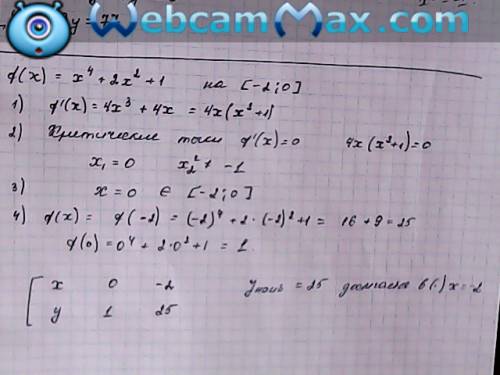 WebcamMax.com
f(x) = x⁴ + 2x² + 1 на [-2;0]
1) f'(x) = 4x³ + 4x = 4x(x²+1)
2) Критические точки f'(x)=0 4x(x²+1)=0
x₁ = 0 x₂² ≠ -1
3) x = 0 ∈ [-2;0]
4) f(x) = f(-2) = (-2)⁴ + 2·(-2)² + 1 = 16 + 9 = 25
f(0) = 0⁴ + 2·0² + 1 = 1.
x 0 -2 = 25 в (·) x = -2
y 1 25